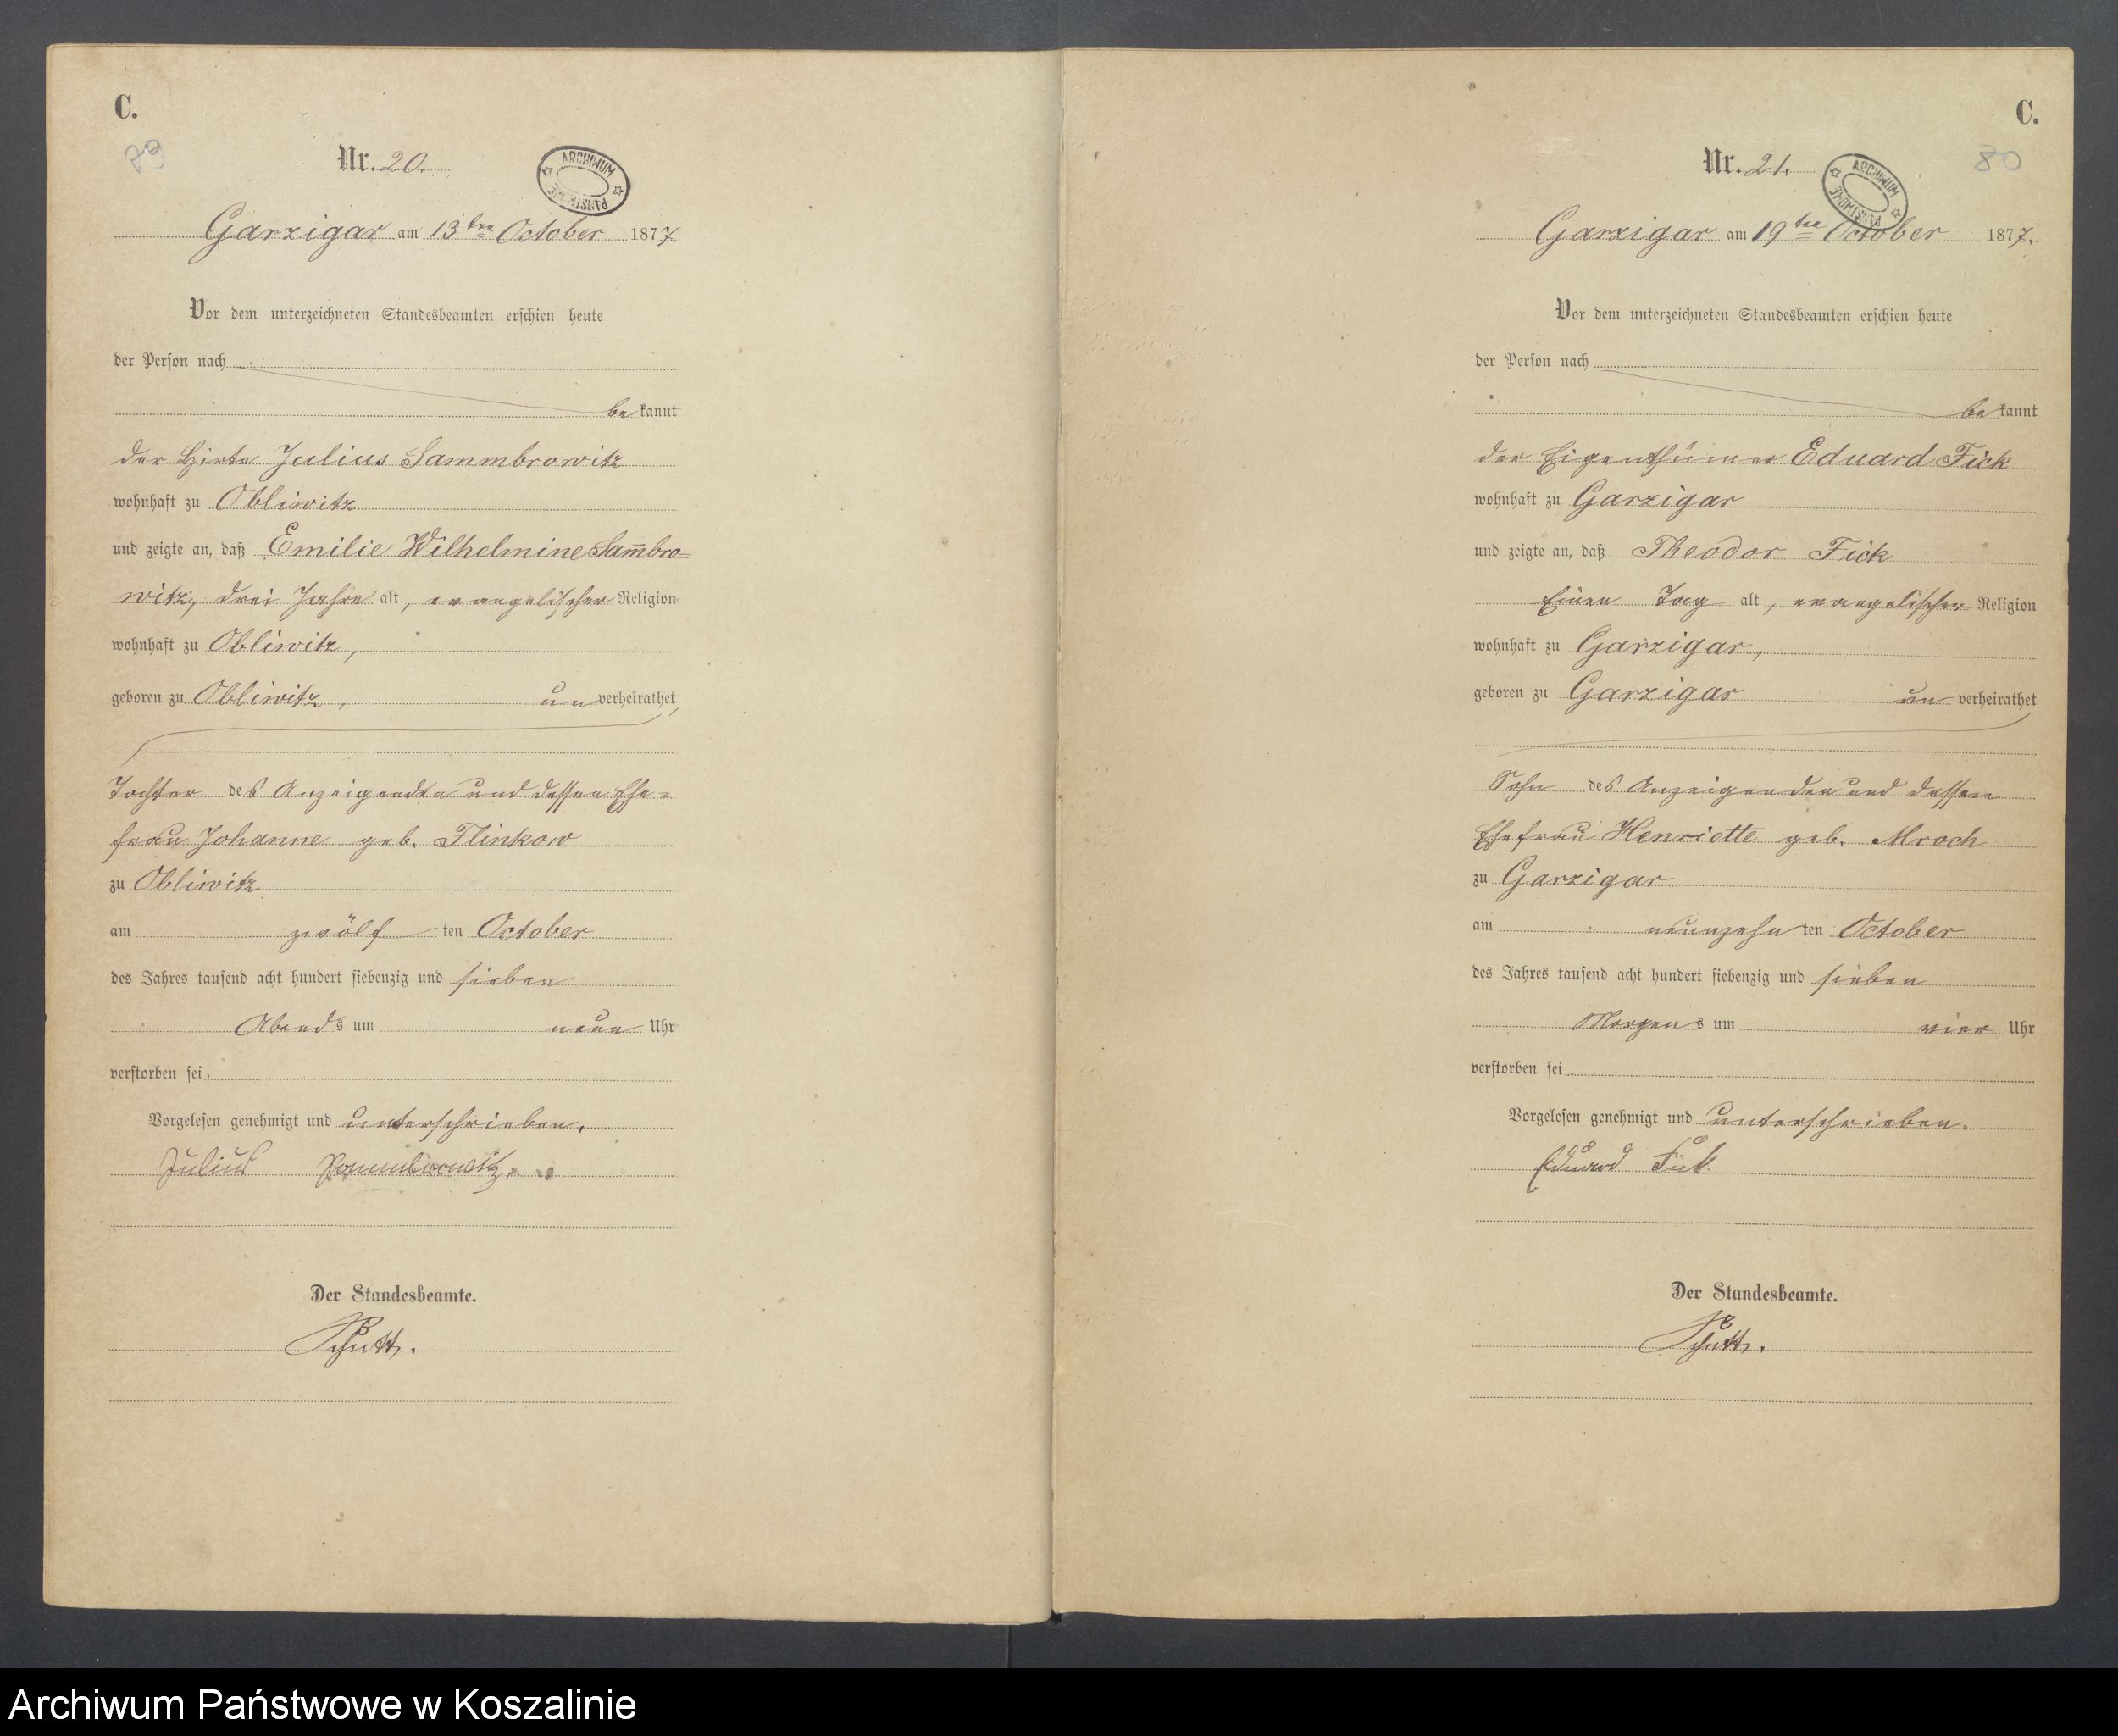 C.
79
Nr. 20.
ARCHIWUM PAŃSTWOWE
Garzigar am 13ten October 1877
Vor dem unterzeichneten Standesbeamten erschien heute
der Person nach
bekannt
der Hirte Julius Sammbrowitz
wohnhaft zu Obliwitz
und zeigte an, daß Emilie Wilhelmine Sam̅bro=
witz, drei Jahre alt, evangelischer Religion
wohnhaft zu Obliwitz,
geboren zu Obliwitz, unverheirathet,
Tochter des Anzeigenden und dessen Ehe=
frau Johanne geb. Flinkow
zu Obliwitz
am zwölften October
des Jahres tausend acht hundert siebenzig und sieben
Abends um neun Uhr
verstorben sei.
Vorgelesen genehmigt und unterschrieben.
Julius Sammbrowitz.
Der Standesbeamte.
C.
80
Nr. 21.
ARCHIWUM PAŃSTWOWE
Garzigar am 19ten October 1877.
Vor dem unterzeichneten Standesbeamten erschien heute
der Person nach
bekannt
der Eigenthümer Eduard Fick
wohnhaft zu Garzigar
und zeigte an, daß Theodor Fick
Einen Tag alt, evangelischer Religion
wohnhaft zu Garzigar,
geboren zu Garzigar unverheirathet
Sohn des Anzeigenden und dessen
Ehefrau Henriette geb. Mroch
zu Garzigar
am neunzehnten October
des Jahres tausend acht hundert siebenzig und sieben
Morgens um vier Uhr
verstorben sei.
Vorgelesen genehmigt und unterschrieben.
Eduard Fick.
Der Standesbeamte.
Archiwum Państwowe w Koszalinie